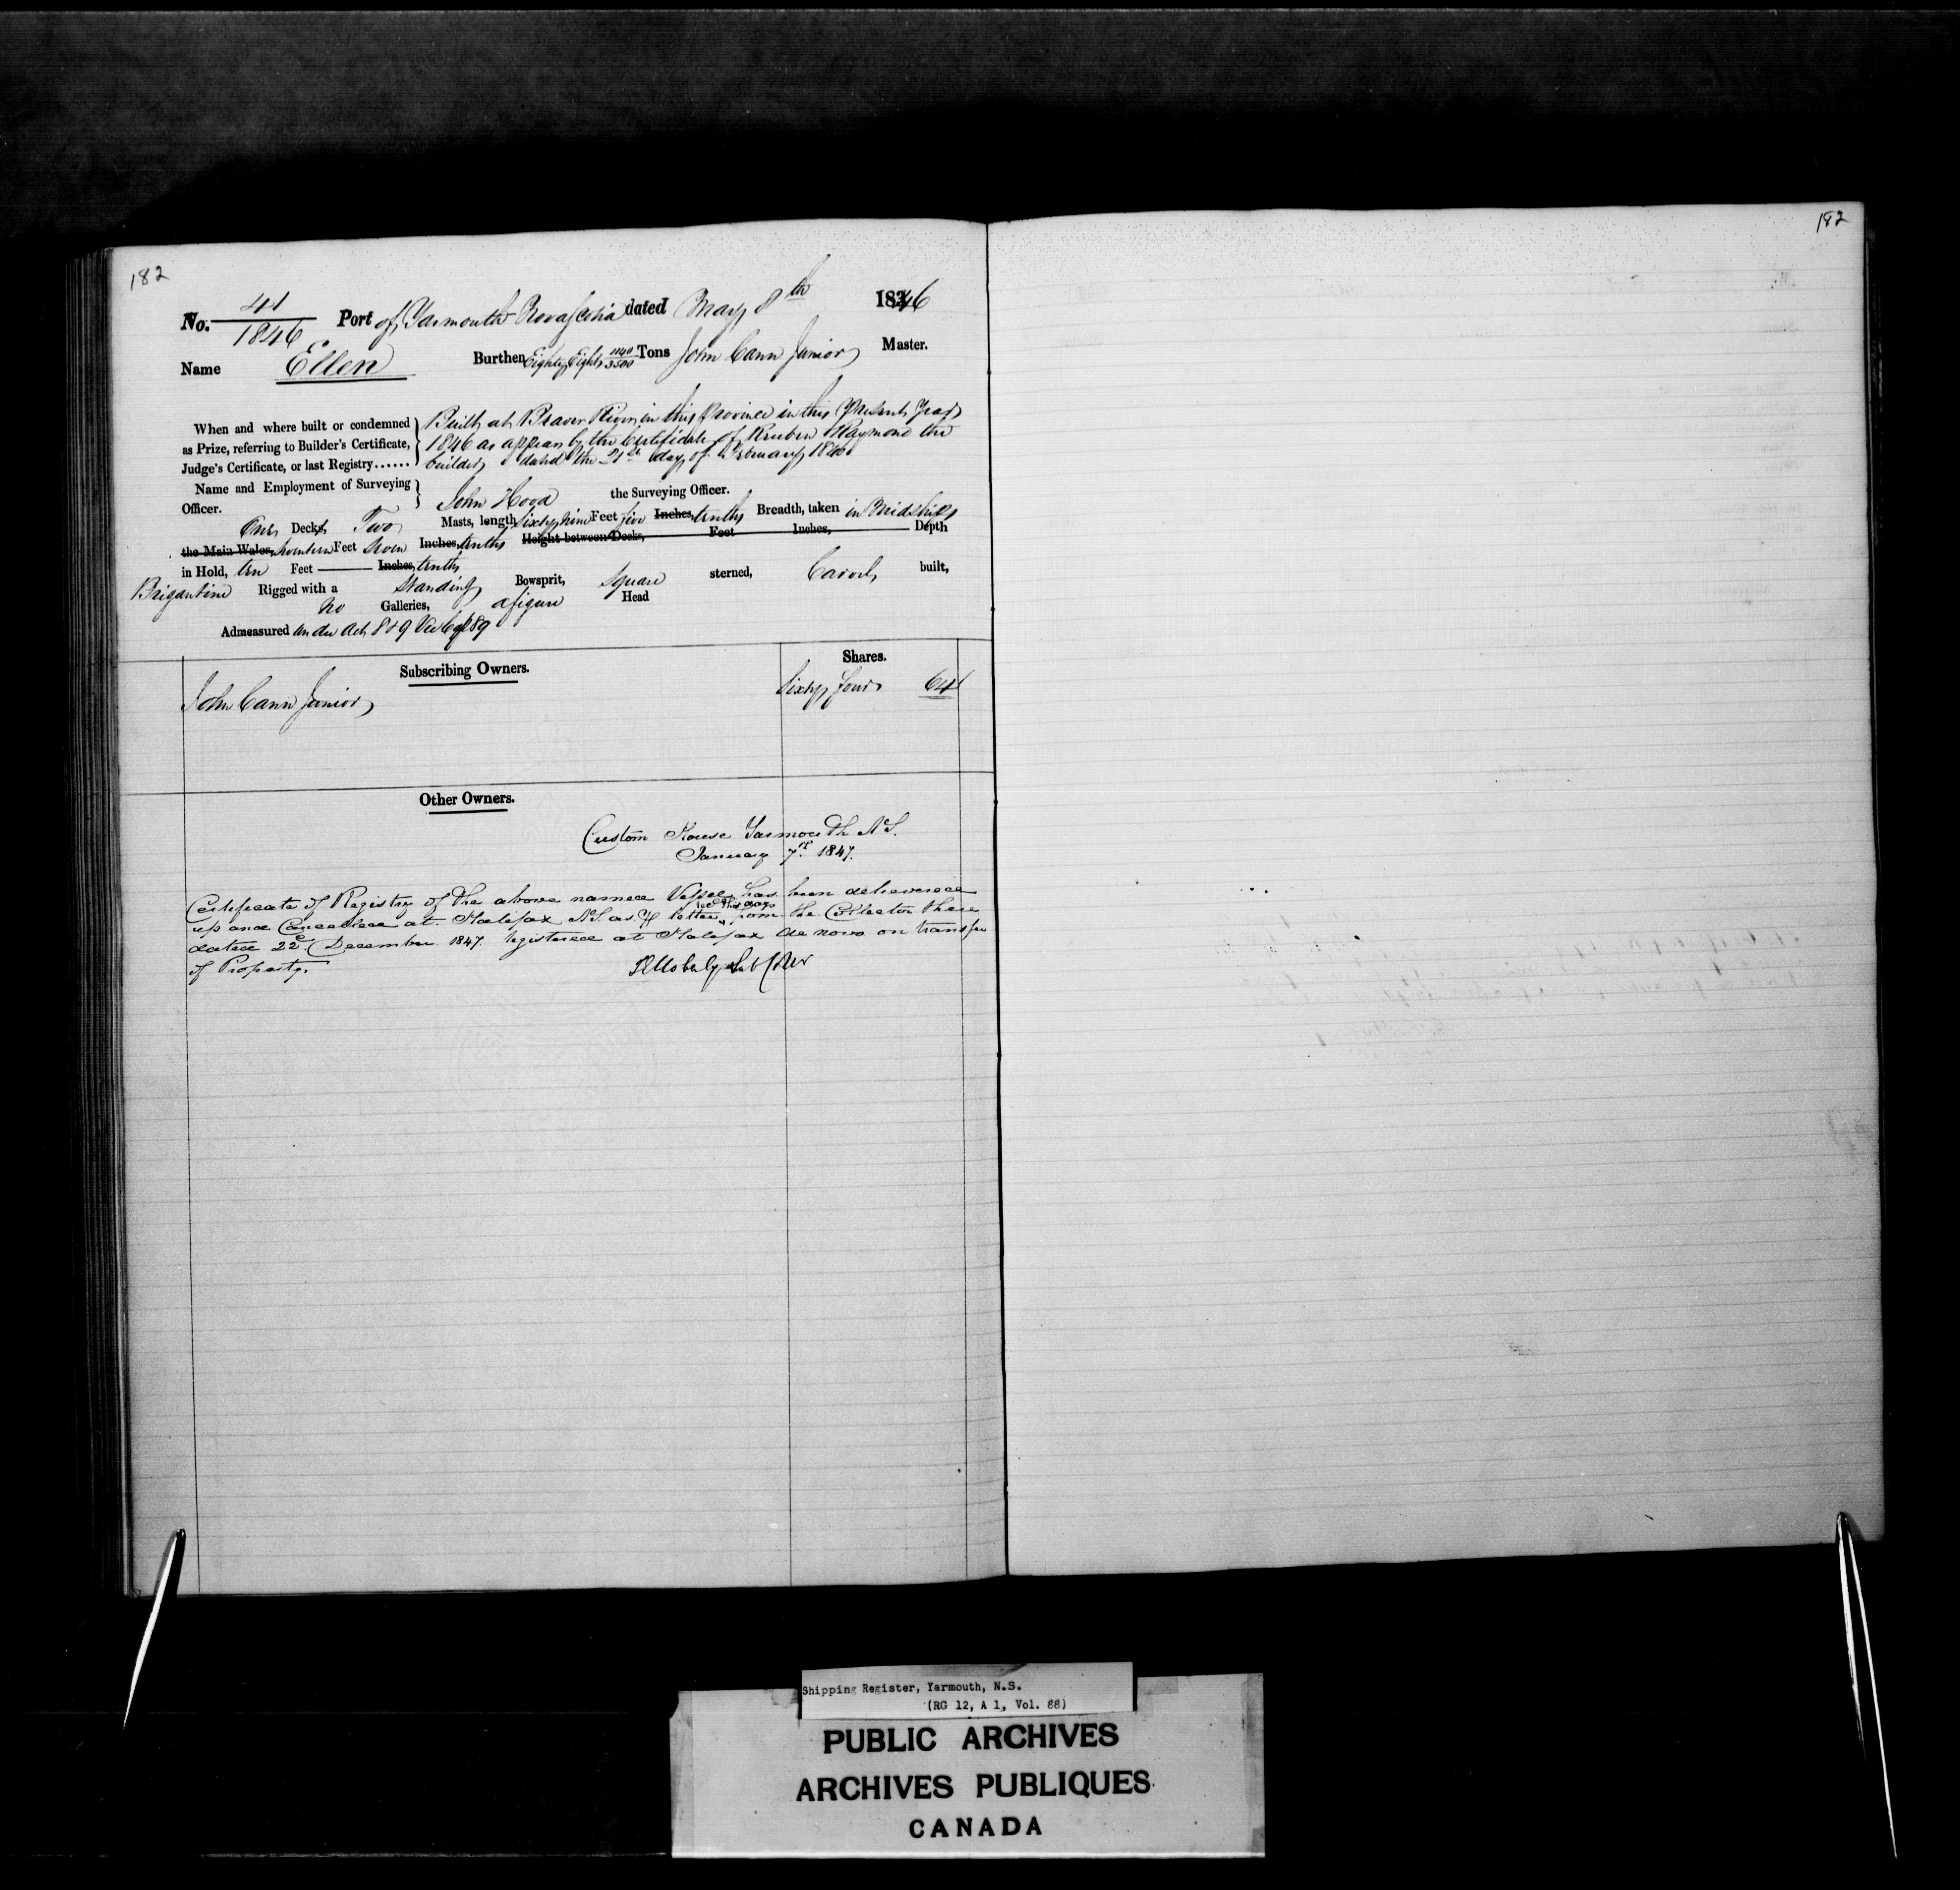 182
182
No. 41/1846 Port of Yarmouth Nova Scotia dated May 8th 1846
Name Ellen Burthen Eighty Eight 1140/3500 Tons John Cann Junior Master.
When and where built or condemned as Prize, referring to Builder's Certificate, Judge's Certificate, or last Registry......
Built at Beaver River in this Province in this present year
1846 as appears by the Certificate of Reuben Raymond the
builder dated the 21st day of February 1846
Name and Employment of Surveying Officer. John Hood the Surveying Officer.
One Decks, Two Masts, length Sixty nine Feet five Inches, tenths Breadth, taken in Midships
the Main Wales, seventeen Feet Seven Inches, tenths Height between Decks, Feet Inches, Depth
in Hold, ten Feet Inches, tenths
Brigantine Rigged with a Standing Bowsprit, Square sterned, Carvel built,
No Galleries, a figure Head
Admeasured under Act 8 & 9 Vic Cap 89
Subscribing Owners. Shares.
John Cann Junior Sixty four 64
Other Owners.
Custom House Yarmouth N.S.
January 7th 1847.
Certificate of Registry of the above named Vessel has been delivered
up and Cancelled at Halifax N.S. as pr letter rec'd this day from the Collector there
dated 22d December 1847. registered at Halifax de novo on transfer
of Property.
Shipping Register, Yarmouth, N.S.
(RG 12, A 1, Vol. 88)
PUBLIC ARCHIVES
ARCHIVES PUBLIQUES
CANADA